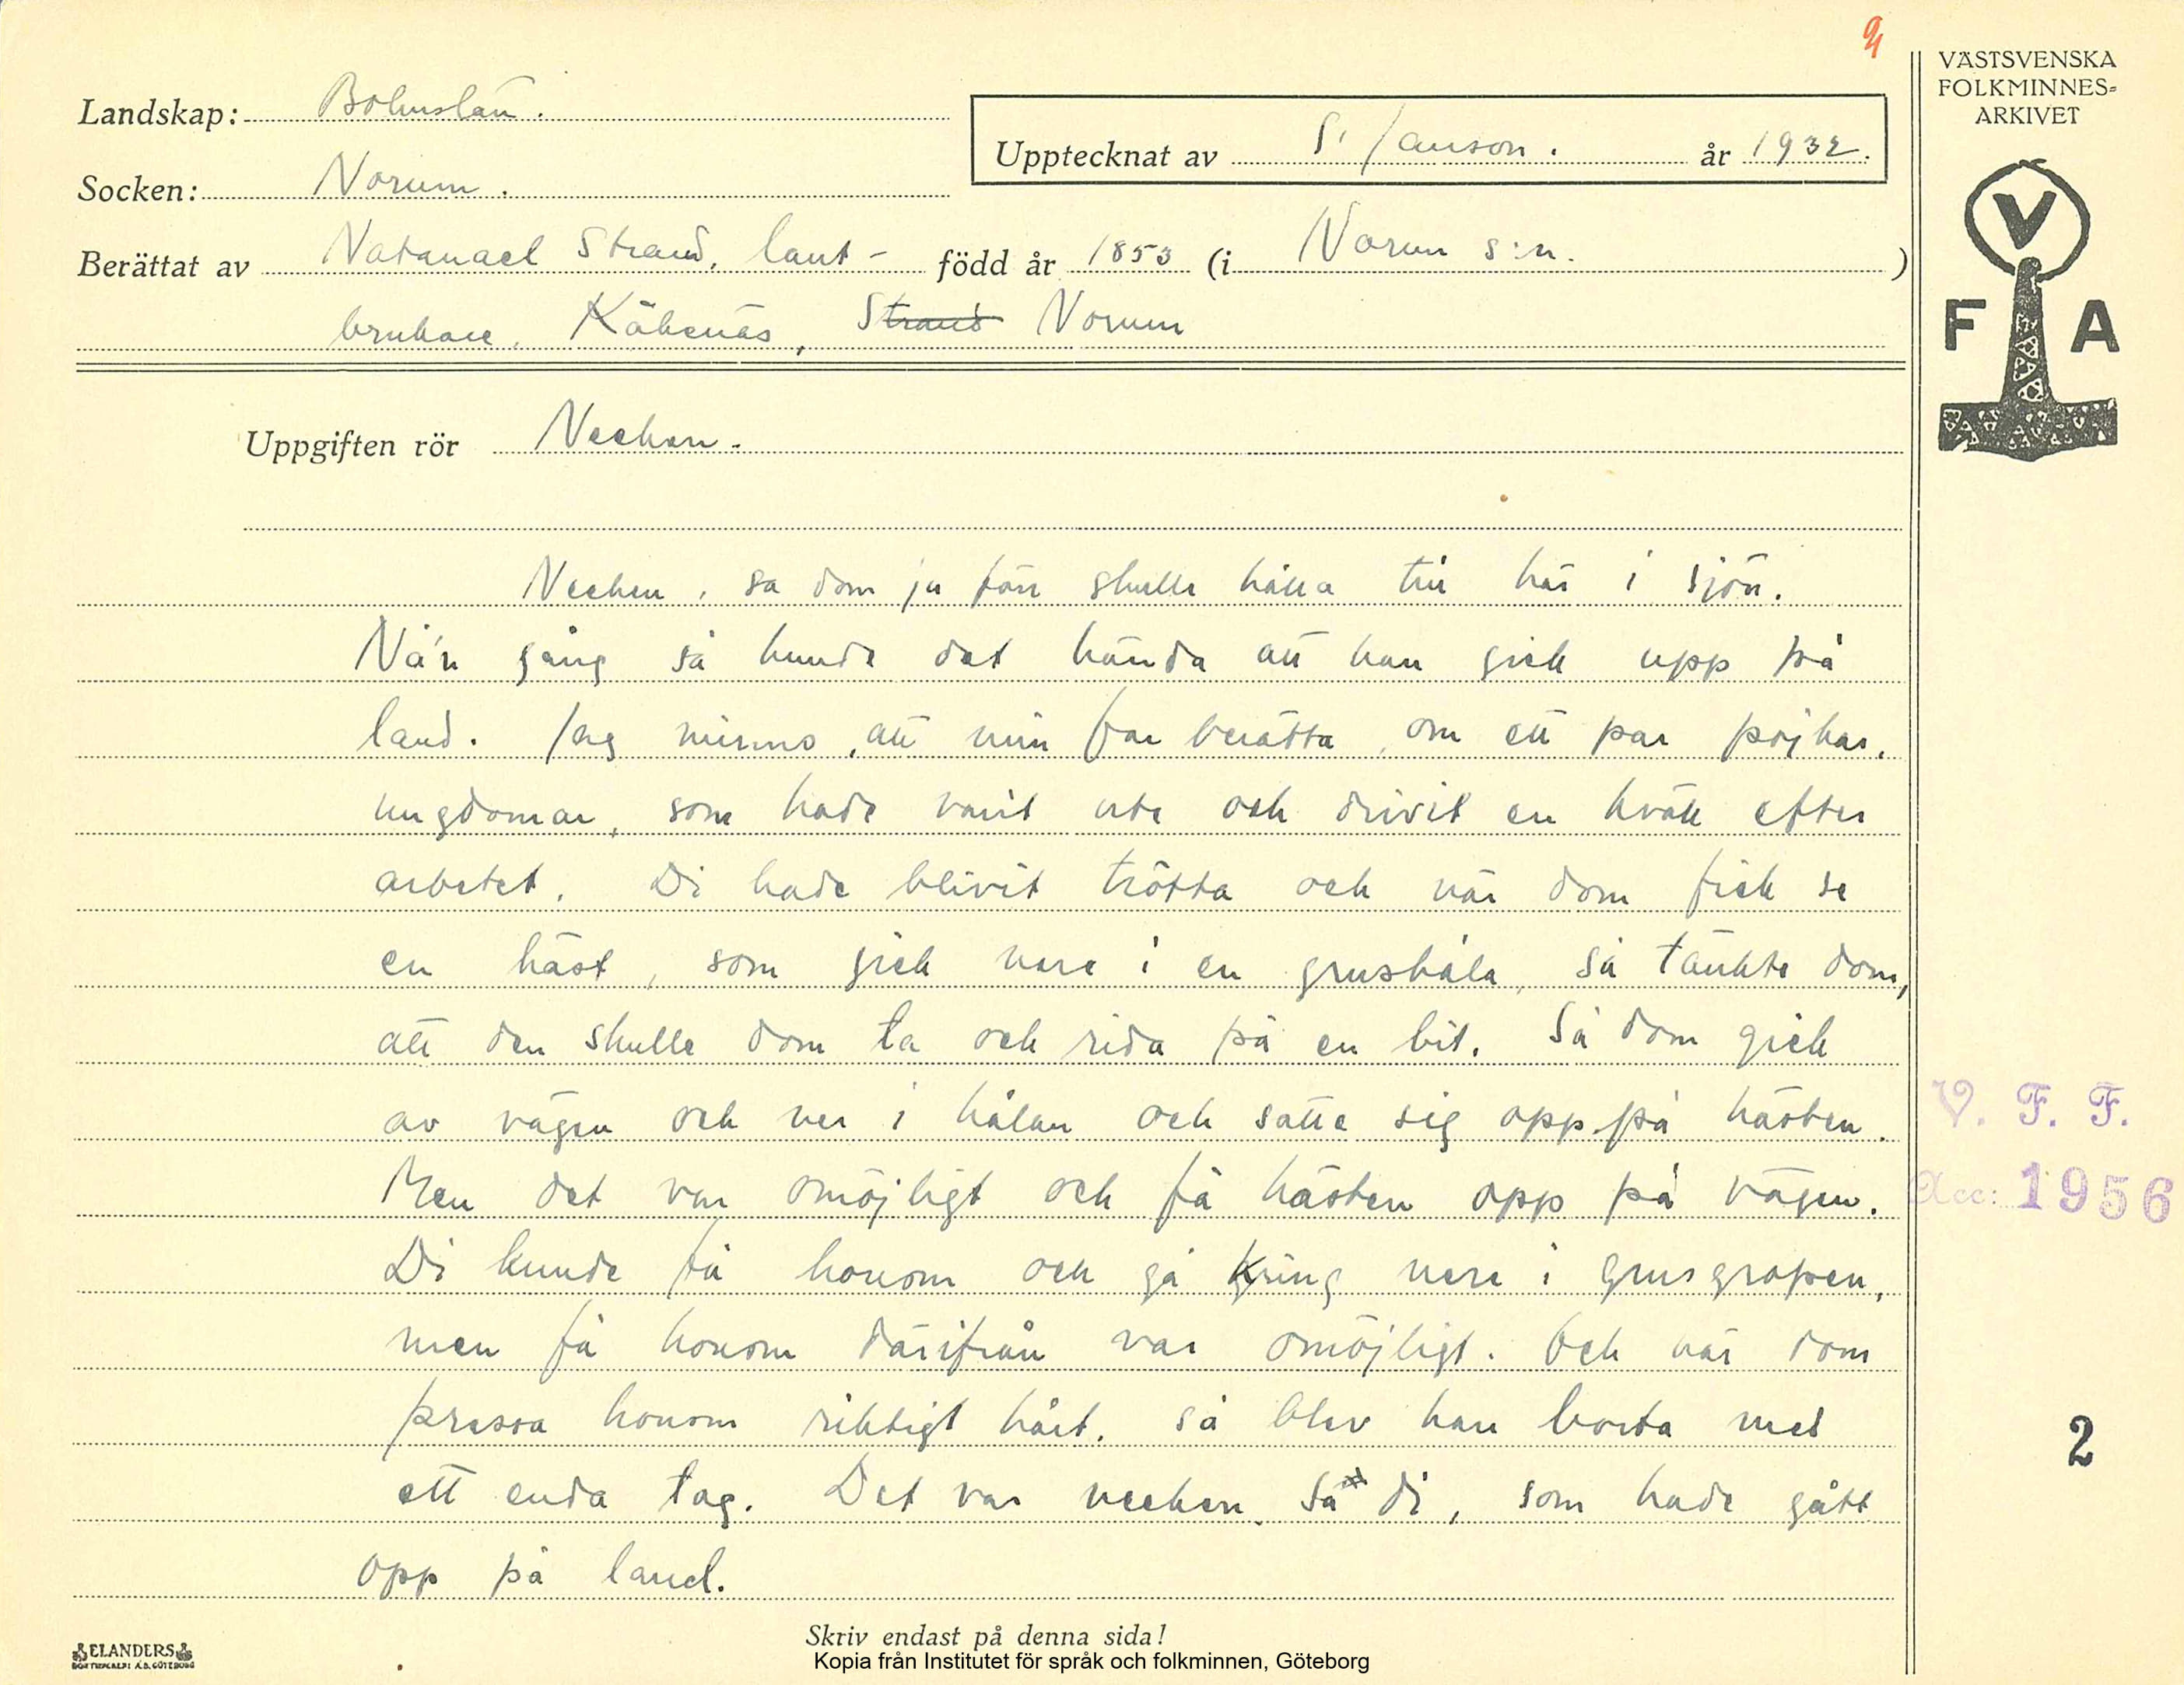 94
VÄSTSVENSKA
FOLKMINNES-
ARKIVET
Landskap: Bohuslän.
Upptecknat av S. Janson. år 1932.
Socken: Norum.
Berättat av Natanael Strand, lant- född år 1853 (i Norum s:n. )
brukare, Kåkenäs, Strand Norum
V
F A
Uppgiften rör Necken.
Necken, sa dom ju förr skulle hålla till här i sjön.
Nå'n gång så kunde det hända att han gick upp på
land. Jag minns, att min far berätta, om ett par pojkar,
ungdomar, som hade varit ute och drivit en kväll efter
arbetet. Di hade blivit trötta och när dom fick se
en häst, som gick nere i en grushåla, så tänkte dom,
att den skulle dom ta och rida på en bit. Så dom gick
av vägen och ner i hålan och satte sig opp på hästen.
Men det var omöjligt och få hästen opp på vägen.
Di kunde få honom och gå kring nere i grusgropen,
men få honom därifrån var omöjligt. Och när dom
pressa honom riktigt hårt, så blev han borta med
ett enda tag. Det var necken, sa di, som hade gått
opp på land.
V. F. F.
Acc: 1956
2
Skriv endast på denna sida!
ELANDERS
BOKTRYCKERI A.B. GÖTEBORG
Kopia från Institutet för språk och folkminnen, Göteborg